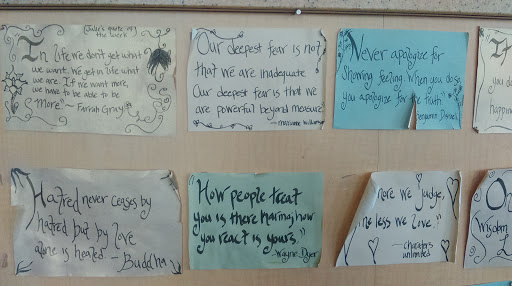 Julie's quote of
the Week
In life we don't get what
we want. We get in life what
we are. If we want more,
we have to be able to be
More" - Farrah Gray
Our deepest fear is not
that we are inadequate
Our deepest fear is that we
are powerful beyond measure
Never apologize for
Showing feeling. When you do so
you apologize for the truth"
Benjamin Disraeli
It
do
happin
Hatred never ceases by
hatred but by love
alone is healed - Buddha
How people treat
you is there Karma, how
you react is yours."
- Wayne Dyer
more we judge,
he less we love."
- charators
unlimited
On
Wisdom
L